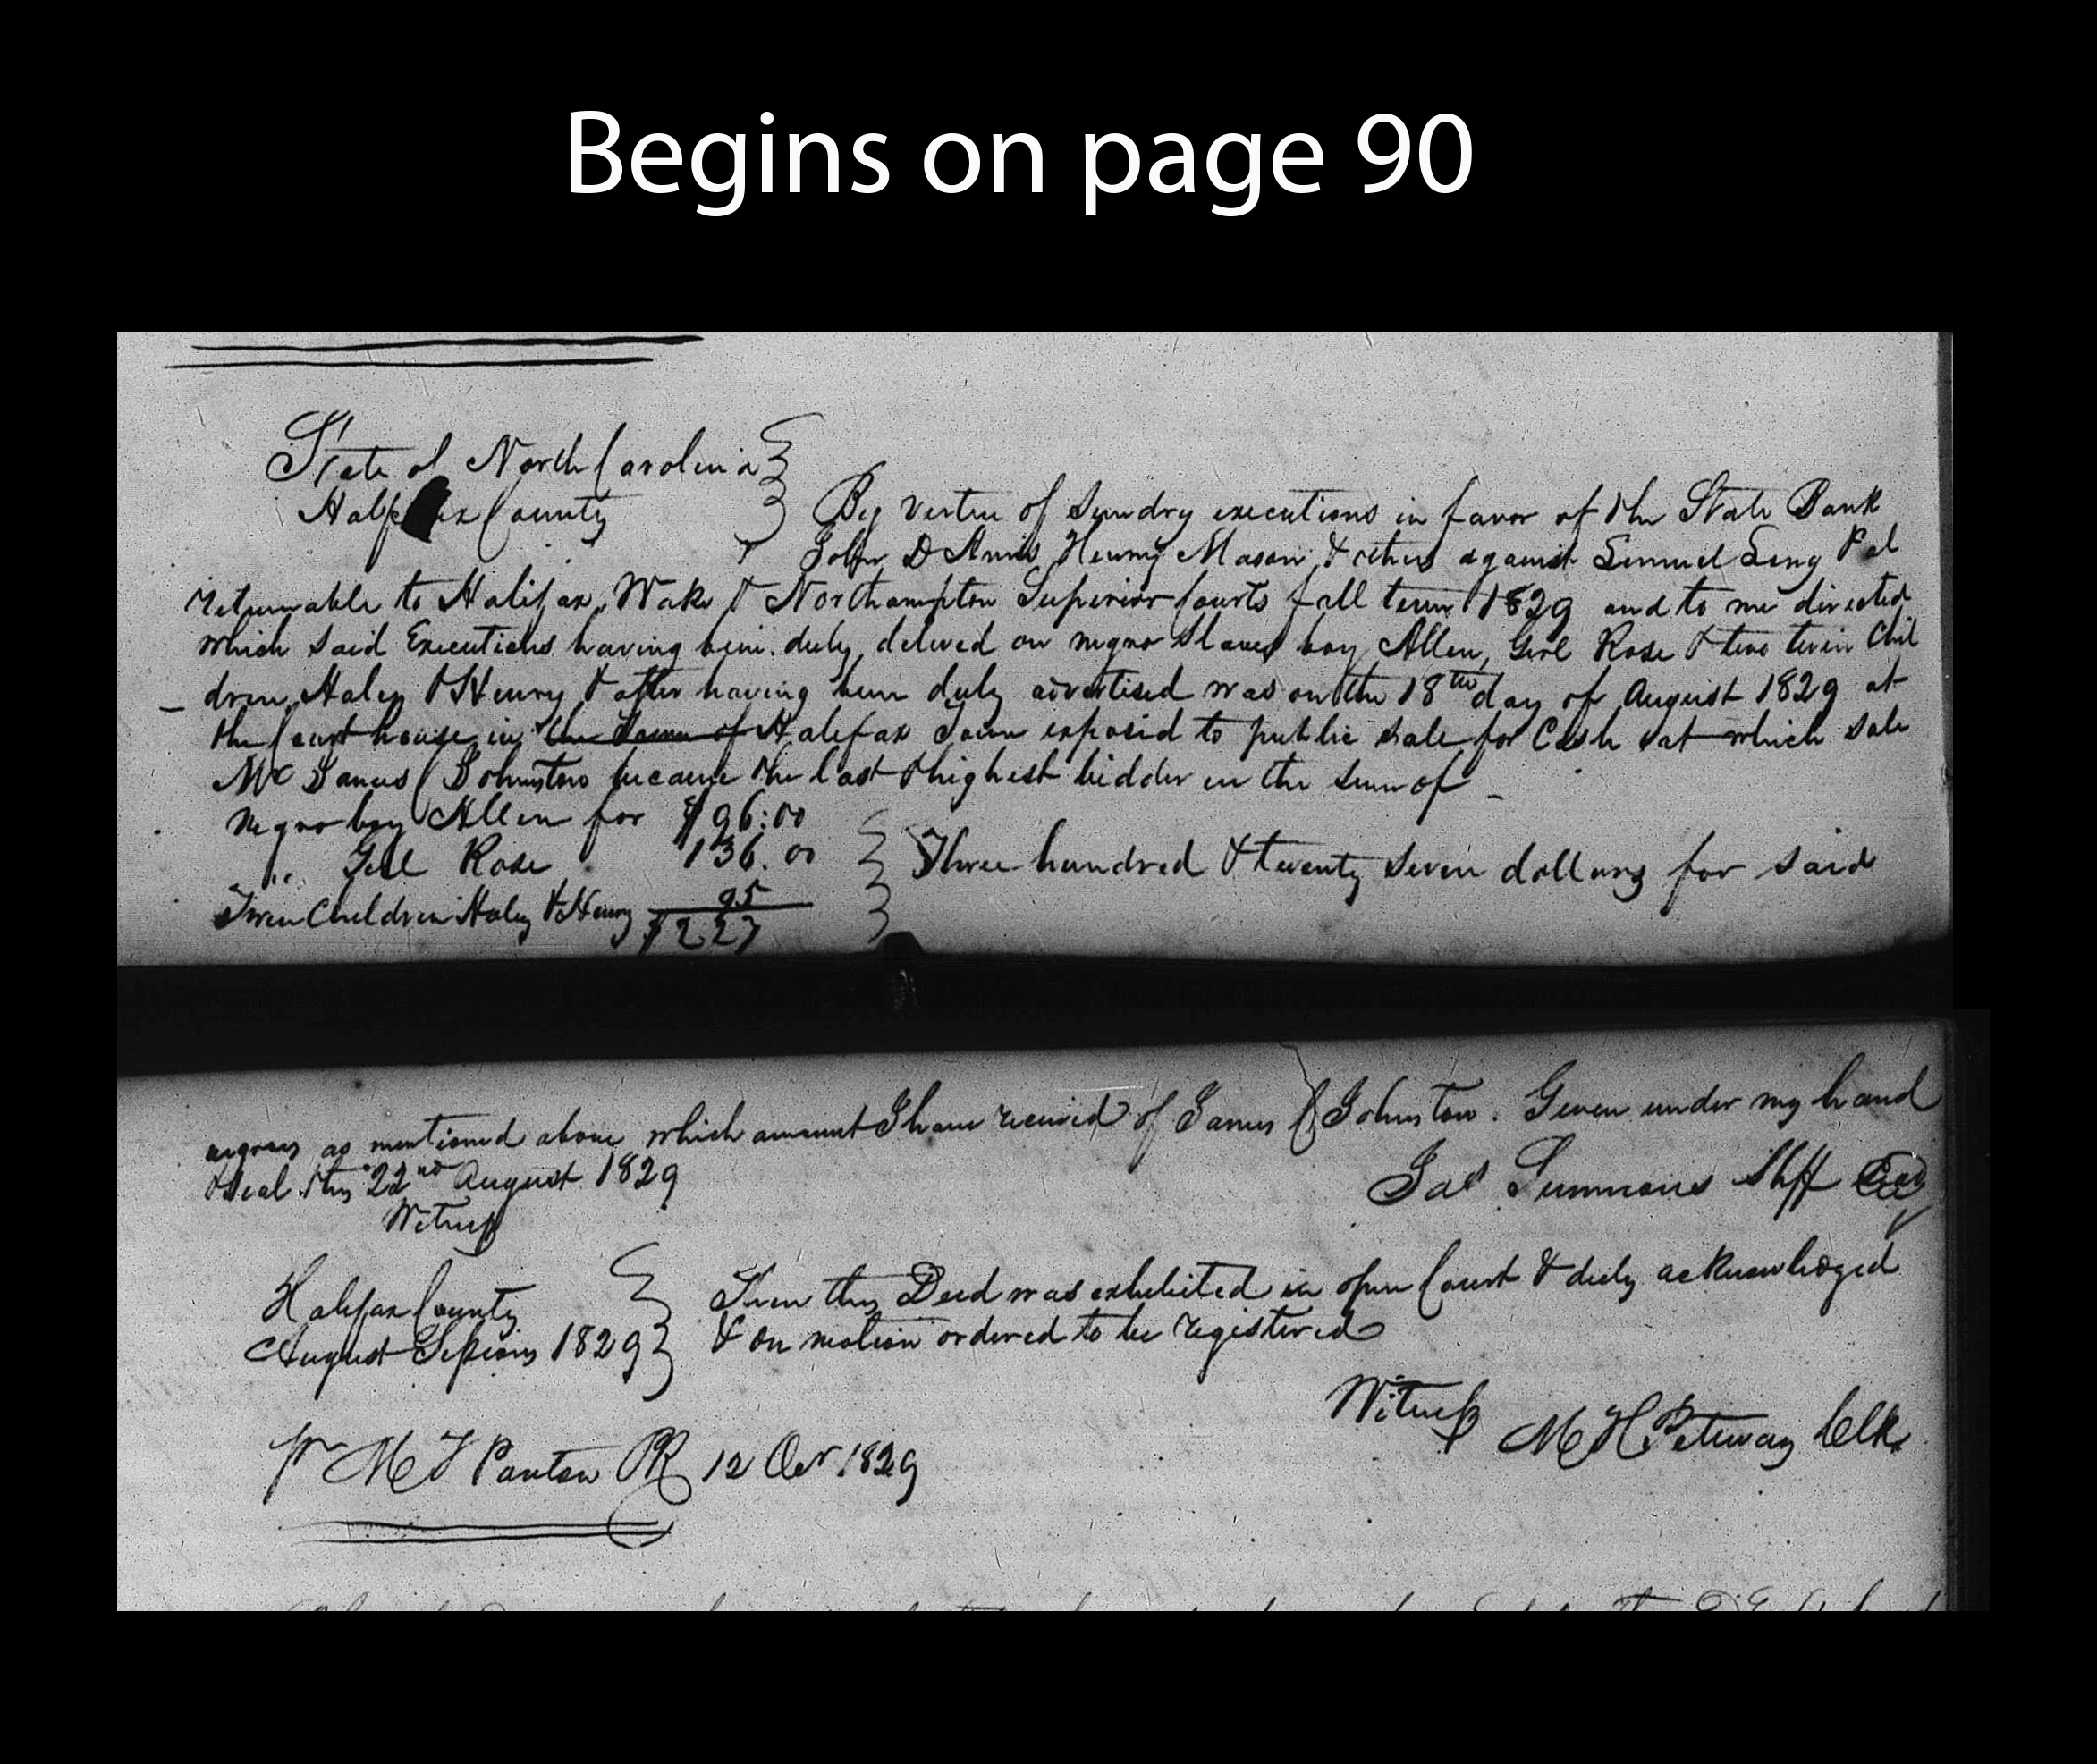 Begins on page 90
State of North Carolina
Halifax County
By Vertue of Sundry executions in favor of the State Bank
John D Amis Henry Mason & others against Lemuel Long
returnable to Halifax, Wake & Northampton Superior Courts fall term 1829 and to me directed
which said Executions having bein duly on negro Slaves boy Allen, Girl Rose & two twin Chil
dren Haley & Henry & after having been duly advertised was on the 18th day of August 1829 at
the Court house in the Town of Halifax Town exposed to public sale for Cash at which sale
Mr James C Johnston became the last & highest bidder in the sum of
Negro boy Allen for $96:00
" Girl Rose 136.00
Three hundred & twenty seven dollars for said
Twin Children Haley & Henry 95
$227
negroes as mentioned above which amount I have received of James C Johnston. Given under my hand
& Seal this 22nd August 1829
Jas Simmons Shff Seal
Witness
Halifax County
August Sessions 1829
Then this Deed was exhibited in open Court & duly acknowledged
& on motion ordered to be registered
Witness M H Petway Clk
pr M T Ponton PR 12 Oct 1829